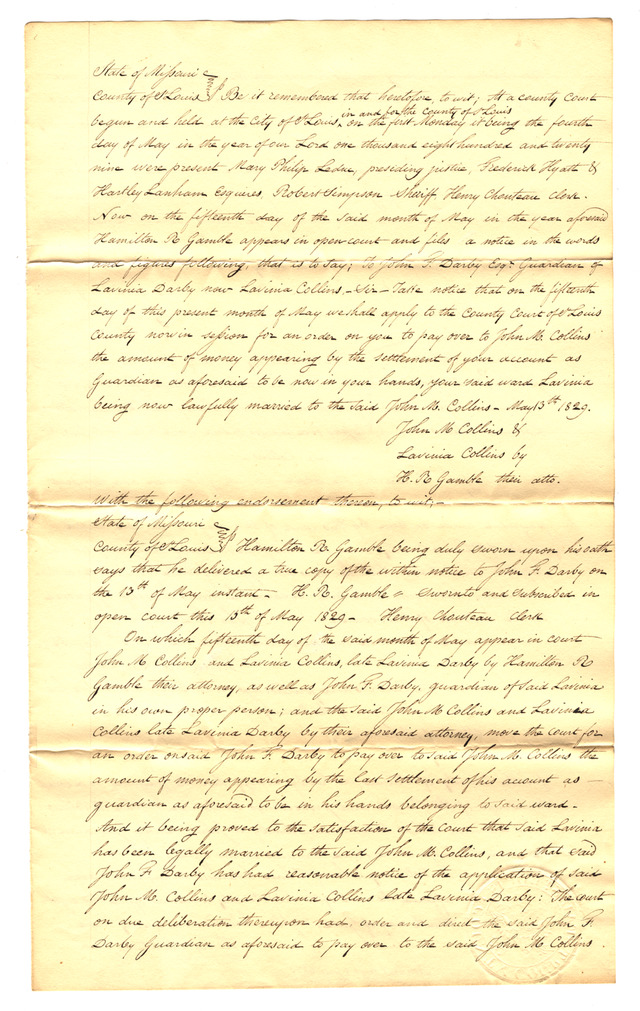 State of Missouri
County of St Louis } ss Be it remembered that heretofore to wit; At a county Court
in and for the county of St Louis
begun and held at the City of St Louis, on the first Monday it being the fourth
day of May in the year of our Lord one thousand eight hundred and twenty
nine were present Mary Philip Leduc, presiding justice, Frederick Hyatt &
Hartley Lanham Esquires, Robert Simpson Sheriff Henry Chouteau Clerk.
Now on the fifteenth day of the said month of May in the year aforesaid
Hamilton R Gamble appears in open court and files a notice in the words
and figures following, that is to say; To John F. Darby Esqr. Guardian of
Lavinia Darby now Lavinia Collins. Sir - Take notice that on the fifteenth
day of this present month of May we shall apply to the County Court of St Louis
County now in session for an order on you to pay over to John M. Collins
the amount of money appearing by the settlement of your account as
Guardian as aforesaid to be now in your hands, your said ward Lavinia
being now lawfully married to the said John M. Collins - May 13th 1829.
John M Collins &
Lavinia Collins by
H. R Gamble their atto.
With the following endorsement thereon, to wit;-
State of Missouri
County of St Louis } ss Hamilton R. Gamble being duly sworn upon his oath
says that he delivered a true copy of the within notice to John F. Darby on
the 13th of May instant - H. R. Gamble " Sworn to and subscribed in
open court this 15th of May 1829 - Henry Chouteau Clerk
On which fifteenth day of the said month of May appear in court
John M Collins and Lavinia Collins, late Lavinia Darby by Hamilton R
Gamble their attorney, as well as John F. Darby, guardian of said Lavinia
in his own proper person; and the said John M Collins and Lavinia
Collins late Lavinia Darby by their aforesaid attorney, move the court for
an order on said John F. Darby to pay over to said John M. Collins the
amount of money appearing by the last settlement of his account as
guardian as aforesaid to be in his hands belonging to said ward -
And it being proved to the satisfaction of the Court that said Lavinia
has been legally married to the said John M. Collins, and that said
John F Darby has had reasonable notice of the application of said
John M. Collins and Lavinia Collins late Lavinia Darby: The court
on due deliberation thereupon had, order and direct the said John F.
Darby Guardian as aforesaid to pay over to the said John M Collins.